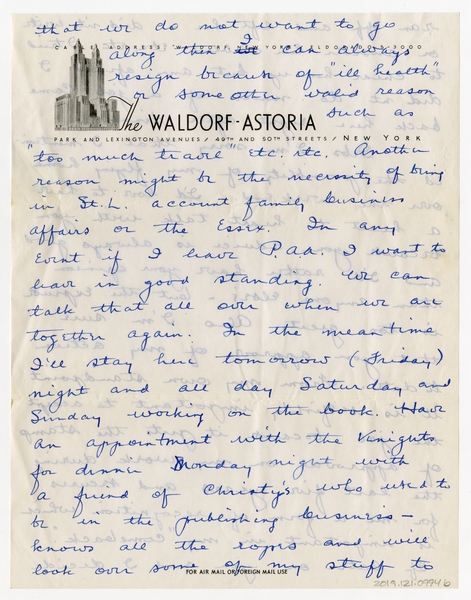 that we do not want to go
CABLE ADDRESS "WALDORF" NEW YORK ELDORADO 5-3000
along then I can always
resign because of "ill health"
or some other valid reason
such as
The WALDORF-ASTORIA
PARK AND LEXINGTON AVENUES / 49TH AND 50TH STREETS / NEW YORK
"too much travel" etc. etc. Another
reason might be the necessity of being
in St. L. account family business
affairs or the Essex. In any
event if I leave P.A.A. I want to
leave in good standing. We can
talk that all over when we are
together again. In the meantime
I'll stay here tomorrow (Friday)
night and all day Saturday and
Sunday working on the book. Have
an appointment with the Knights
for dinner Monday night with
a friend of Christy's who used to
be in the publishing business —
knows all the ropes and will
look over some of my stuff to
FOR AIR MAIL OR FOREIGN MAIL USE
2019.121.0994b